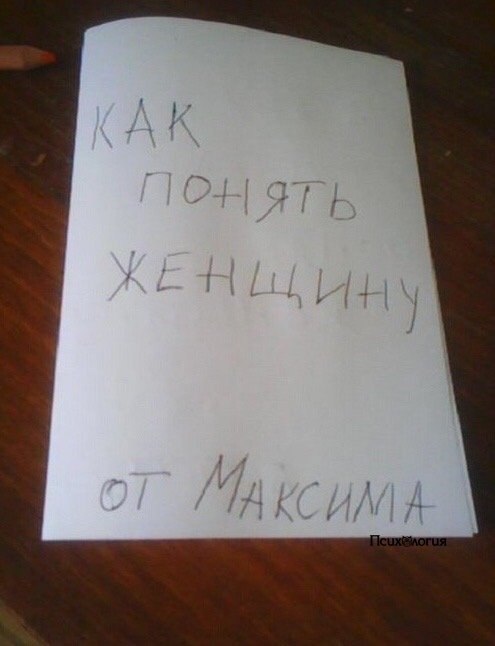 КАК
ПОНЯТЬ
ЖЕНЩИНУ
ОТ МАКСИМА
Психология